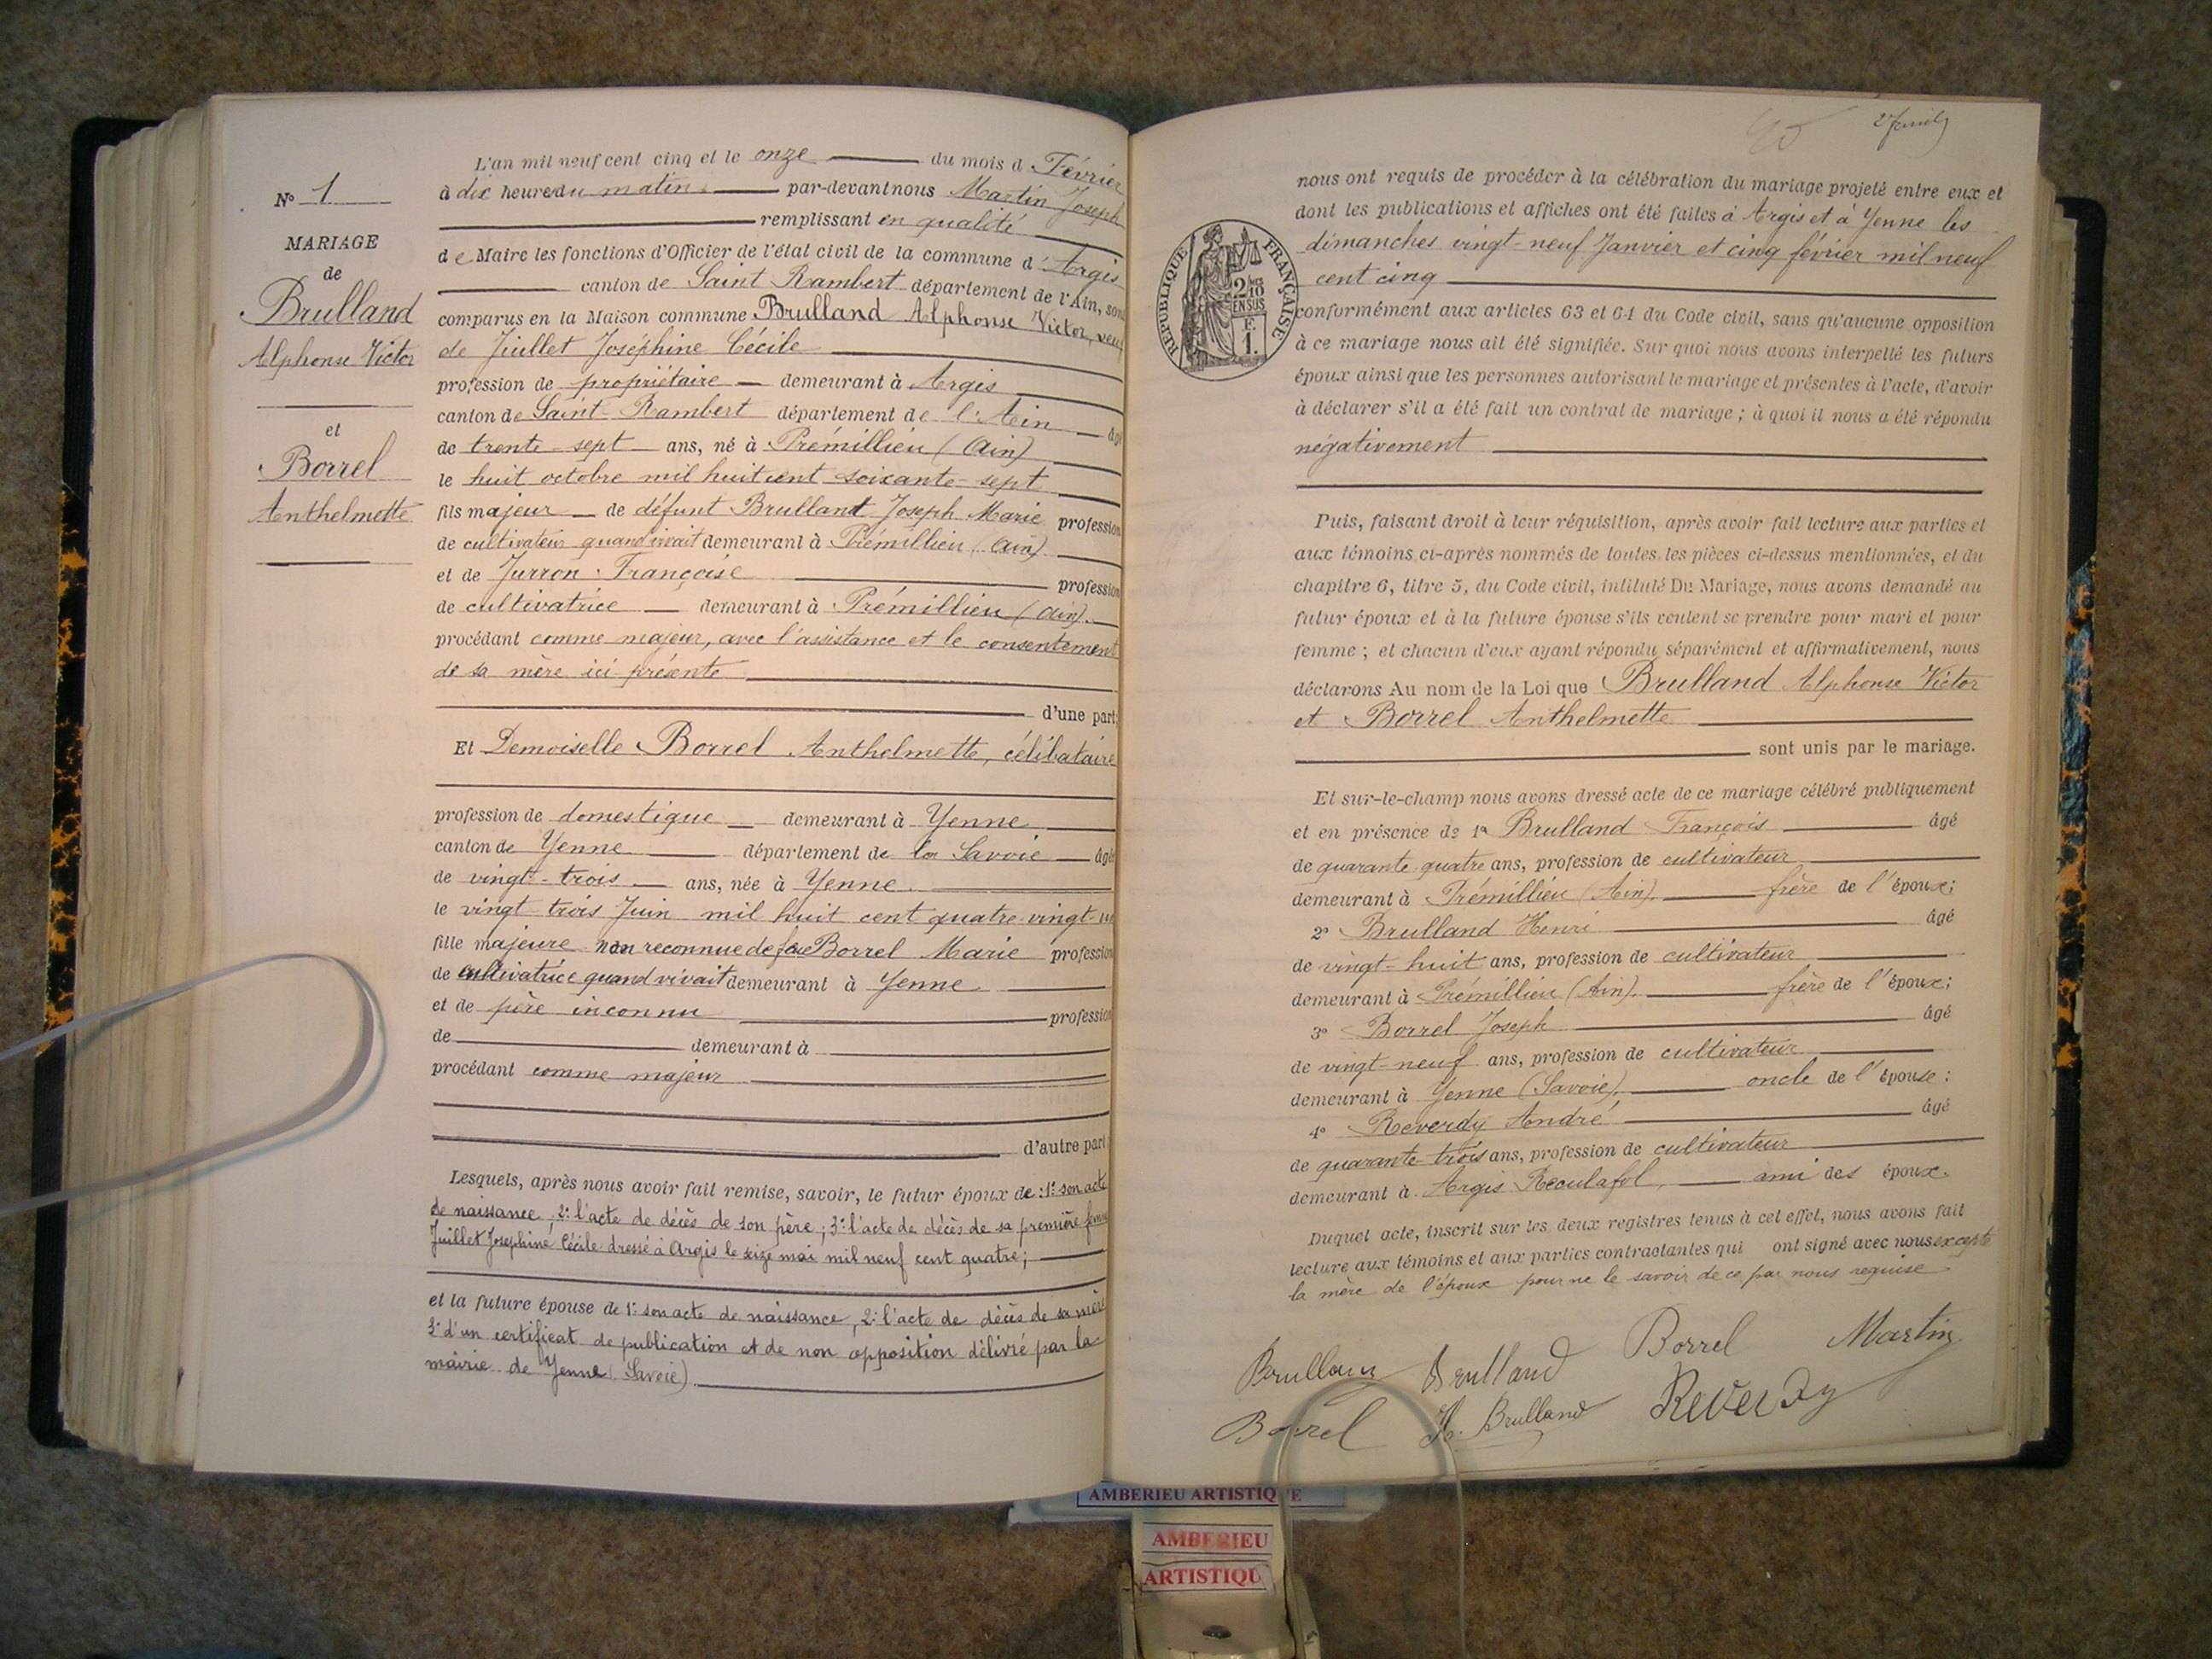 N° 1
MARIAGE
de
Brulland
Alphonse Victor
et
Borrel
Anthelmette
L'an mil neuf cent cinq et le onze du mois d Février
à dix heures du matin par-devant nous Martin Joseph
remplissant en qualité
de Maire les fonctions d'Officier de l'état civil de la commune d'Argis
canton de Saint Rambert département de l'Ain, sont
comparus en la Maison commune Brulland Alphonse Victor, veuf
de Juillet Joséphine Cécile
profession de propriétaire demeurant à Argis
canton de Saint-Rambert département de l'Ain âgé
de trente-sept ans, né à Prémillieu (Ain)
le huit octobre mil huit cent soixante-sept
fils majeur de défunt Brulland Joseph Marie profession
de cultivateur quand vivait demeurant à Prémillieu (Ain)
et de Jurron Françoise profession
de cultivatrice demeurant à Prémillieu (Ain).
procédant comme majeur, avec l'assistance et le consentement
de sa mère ici présente
d'une part;
Et Demoiselle Borrel Anthelmette, célibataire
profession de domestique demeurant à Yenne
canton de Yenne département de la Savoie âgée
de vingt-trois ans, née à Yenne
le vingt-trois Juin mil huit cent quatre-vingt-un
fille majeure non reconnue de Borrel Marie profession
de cultivatrice quand vivait demeurant à Yenne
et de père inconnu profession
de demeurant à
procédant comme majeur
d'autre part
Lesquels, après nous avoir fait remise, savoir, le futur époux de : 1° son acte
de naissance ; 2° l'acte de décès de son père ; 3° l'acte de décès de sa première femme
Juillet Joséphine Cécile dressé à Argis le seize mai mil neuf cent quatre ;
et la future épouse de 1° son acte de naissance, 2° l'acte de décès de sa mère
3° d'un certificat de publication et de non opposition délivré par la
mairie de Yenne (Savoie)
nous ont requis de procéder à la célébration du mariage projeté entre eux et
dont les publications et affiches ont été faites à Argis et à Yenne les
dimanches vingt-neuf Janvier et cinq février mil neuf
cent cinq
REPUBLIQUE FRANÇAISE
2/10
EN SUS
F.
1.
conformément aux articles 63 et 64 du Code civil, sans qu'aucune opposition
à ce mariage nous ait été signifiée. Sur quoi nous avons interpellé les futurs
époux ainsi que les personnes autorisant le mariage et présentes à l'acte, d'avoir
à déclarer s'il a été fait un contrat de mariage ; à quoi il nous a été répondu
négativement
Puis, faisant droit à leur réquisition, après avoir fait lecture aux parties et
aux témoins ci-après nommés de toutes les pièces ci-dessus mentionnées, et du
chapitre 6, titre 5, du Code civil, intitulé Du Mariage, nous avons demandé au
futur époux et à la future épouse s'ils veulent se prendre pour mari et pour
femme ; et chacun d'eux ayant répondu séparément et affirmativement, nous
déclarons Au nom de la Loi que Brulland Alphonse Victor
et Borrel Anthelmette
sont unis par le mariage.
Et sur-le-champ nous avons dressé acte de ce mariage célébré publiquement
et en présence de 1° Brulland François âgé
de quarante-quatre ans, profession de cultivateur
demeurant à Prémillieu (Ain). frère de l'époux;
2° Brulland Henri âgé
de vingt-huit ans, profession de cultivateur
demeurant à Prémillieu (Ain). frère de l'époux;
3° Borrel Joseph âgé
de vingt-neuf ans, profession de cultivateur
demeurant à Yenne (Savoie). oncle de l'épouse:
4° Reverdy André âgé
de quarante-trois ans, profession de cultivateur
demeurant à Argis Reculafol, ami des époux.
Duquel acte, inscrit sur les deux registres tenus à cet effet, nous avons fait
lecture aux témoins et aux parties contractantes qui ont signé avec nous excepté
la mère de l'époux pour ne le savoir de ce par nous requise
Brulland Brulland Borrel Martin
Borrel H. Brulland Reverdy
AMBERIEU ARTISTIQUE
AMBERIEU
ARTISTIQU